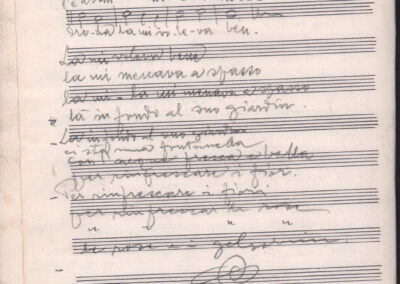 dro-ba la mi vo-le-va ben.
La mi voleva bene
la mi menava a spasso
la mi - la mi menava a spasso
là in fondo al suo giardin.
La in fondo al suo giardin
ci sta una fontanella
con l'acqua fresca e bella
Per rinfrescare i fior.
Per rinfrescare i fiori
per rinfrescar le rose
" " "
le rose e i gelsomin.